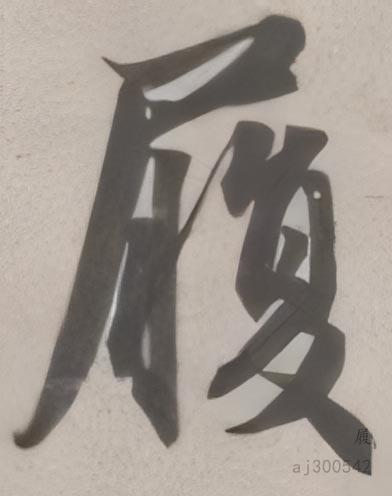 履
履
aj300542